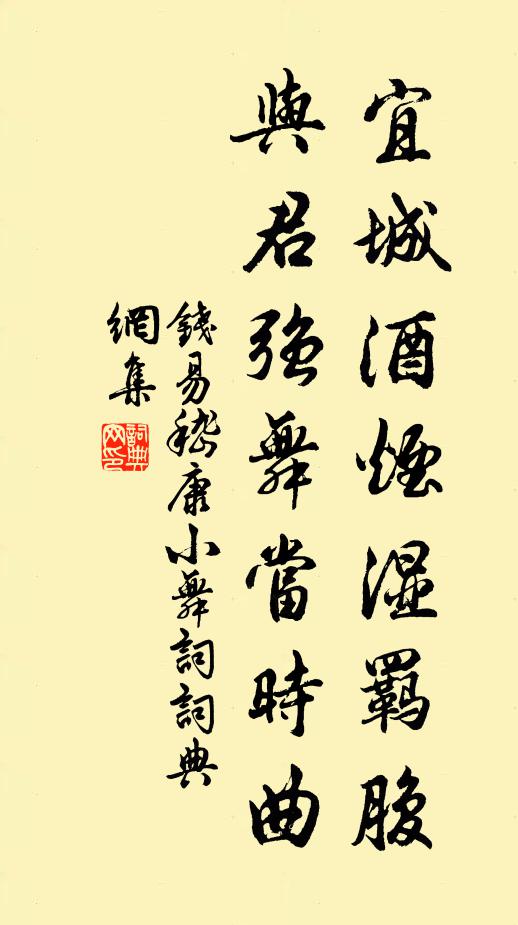 宜城酒煙湿羈腹
與君強舞當時曲
錢易嵇康小舞詞詞典
網集
詞典网印